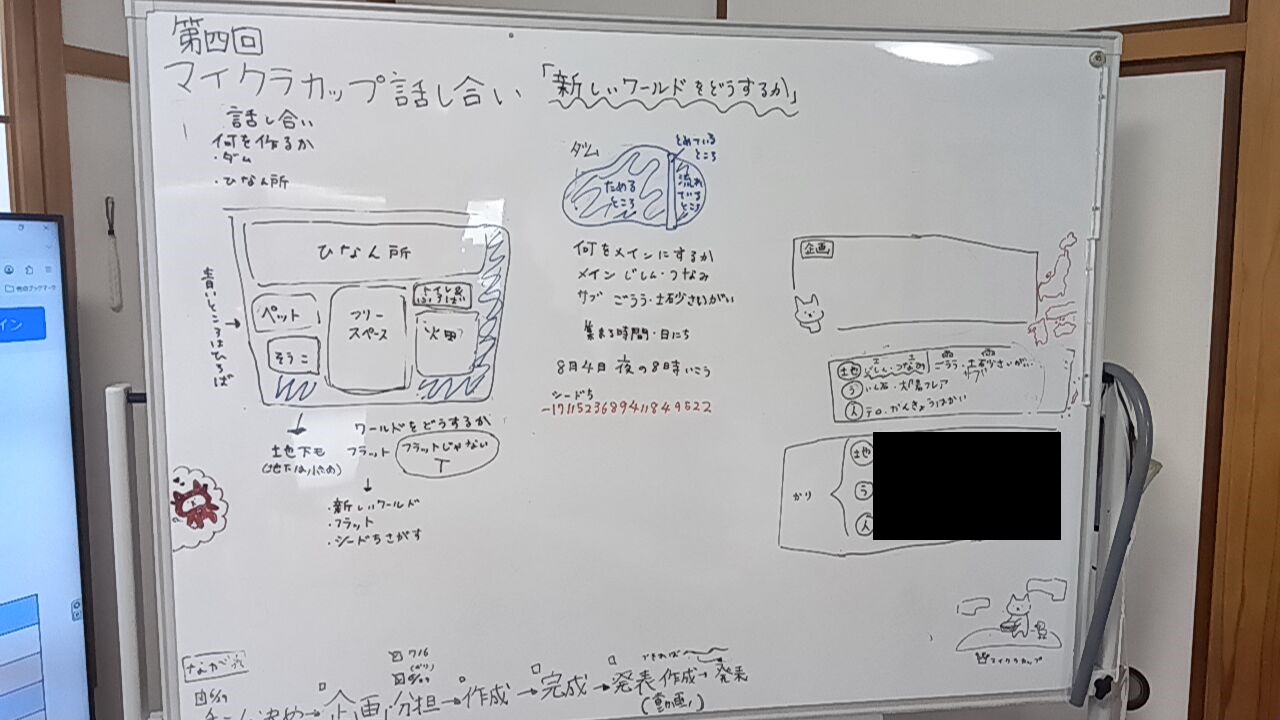 第四回
マイクラカップ話し合い 「新しいワールドをどうするか」
話し合い
何を作るか
・ダム
・ひなん所
ひなん所
ペット
フリー
スペース
トイレ&
火田
そうこ
青いところはひろば
土也下モ
(地下は小さめ)
ワールドをどうするか
フラット フラットじゃない
・新しいワールド
・フラット
・シードちさがす
ダム
ためる
ところ
とめている
ところ
流れ
でる
ところ
何をメインにするか
メイン じしん・つなみ
サブ ごうう・土砂さいがい
集まる時間・日にち
8月4日 夜の8時いこう
シードち
-1711523689411849522
企画
地 じしん・つなみ ごうう・土砂さいがい
サブ
う いん石・太陽フレア
人 テロ・かんきょうはかい
かり
地
う
人
マイクラカップ
ながれ
7/6
(かり)
チーム決め→企画→分担→作成→完成→発表作成→発表
できれば
(動画)